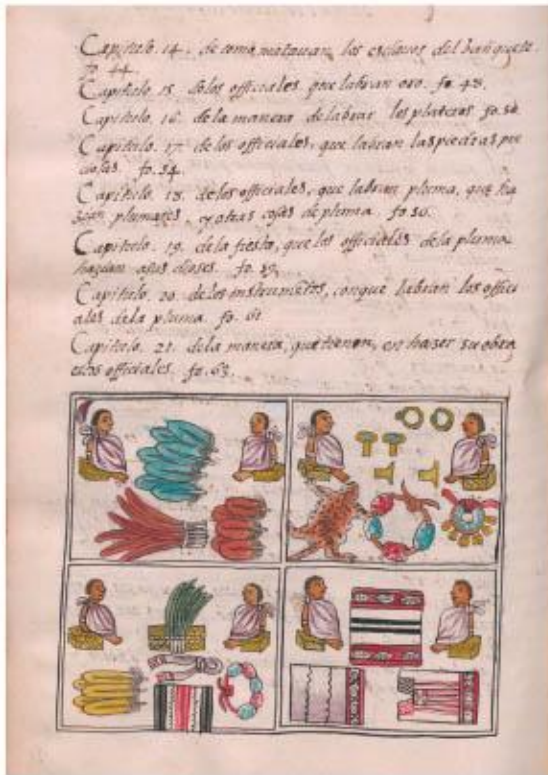 Capitulo. 14. de como matauan los esclauos del banquete.
fo. 44.
Capitulo. 15. delos officiales que labran oro. fo. 48.
Capitulo. 16. dela manera de labrar los plateros fo.
Capitulo. 17. de los officiales, que labran las piedras pre
ciosas. fo. 54.
Capitulo. 18. delos officiales, que labran pluma, que ha
plumajes, y otras cosas de pluma. fo. 56.
Capitulo. 19. dela fiesta, que los officiales dela pluma
hazian a sus dioses. fo. 59.
Capitulo. 20. delos instrumētos, conque labran los offici
ales dela pluma. fo. 61
Capitulo. 21. dela manera, que tienen, en hazer su obra
estos officiales. fo. 63.